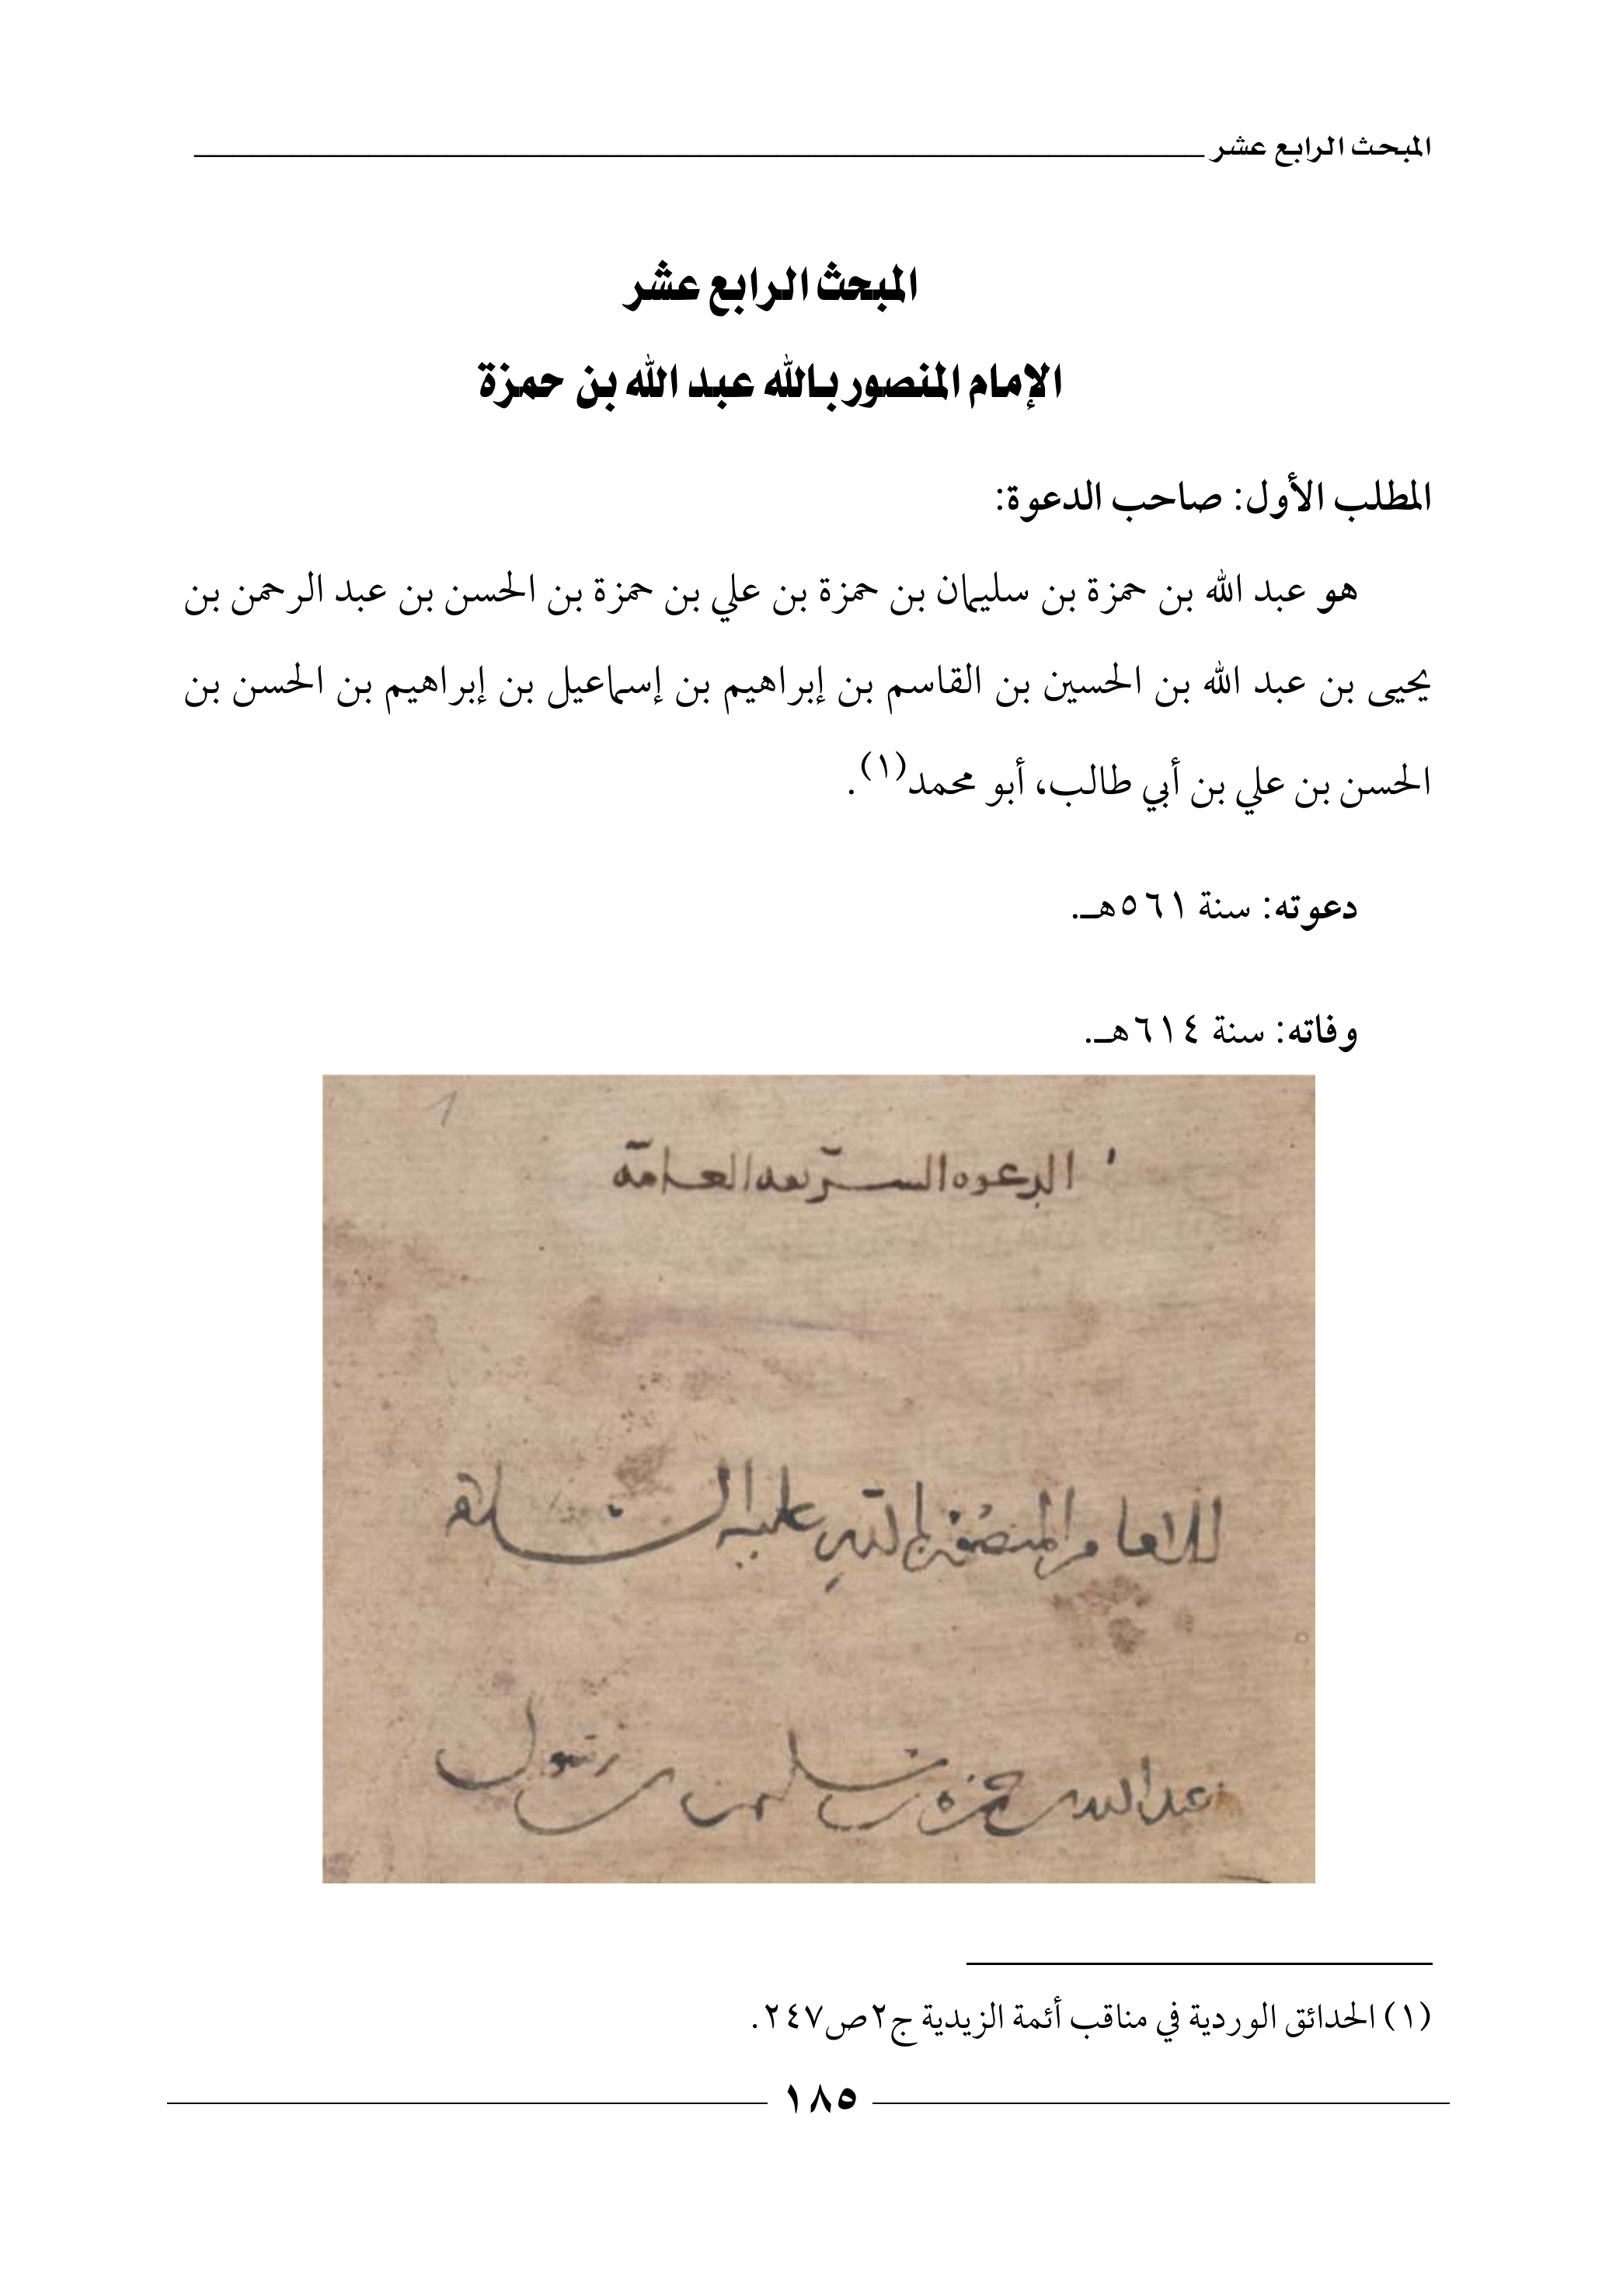 المبحث الرابع عشر
المبحث الرابع عشر
الإمام المنصور بالله عبد الله بن حمزة
المطلب الأول: صاحب الدعوة:
هو عبد الله بن حمزة بن سليمان بن حمزة بن علي بن حمزة بن الحسن بن عبد الرحمن بن
يحيى بن عبد الله بن الحسين بن القاسم بن إبراهيم بن إسماعيل بن إبراهيم بن الحسن بن
الحسن بن علي بن أبي طالب، أبو محمد(١).
دعوته: سنة ٥٦١هـ.
وفاته: سنة ٦١٤هـ.
1
الدعوه السريعه العامه
للامام المنصور بالله عليه السلام
عبدالله بن حمزه بن سليمن بن رسول
(١) الحدائق الوردية في مناقب أئمة الزيدية ج٢ص٢٤٧.
١٨٥